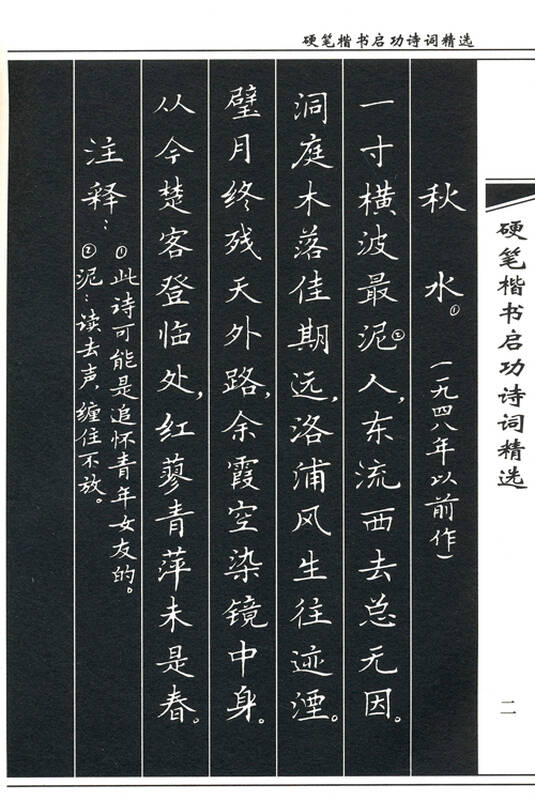 硬笔楷书启功诗词精选
硬笔楷书启功诗词精选
二
秋水①（一九四八年以前作）
一寸横波最泥②人，东流西去总无因。
洞庭木落佳期远，洛浦风生往迹湮。
璧月终残天外路，余霞空染镜中身。
从今楚客登临处，红蓼青萍未是春。
注释：①此诗可能是追怀青年女友的。
②泥：读去声，缠住不放。